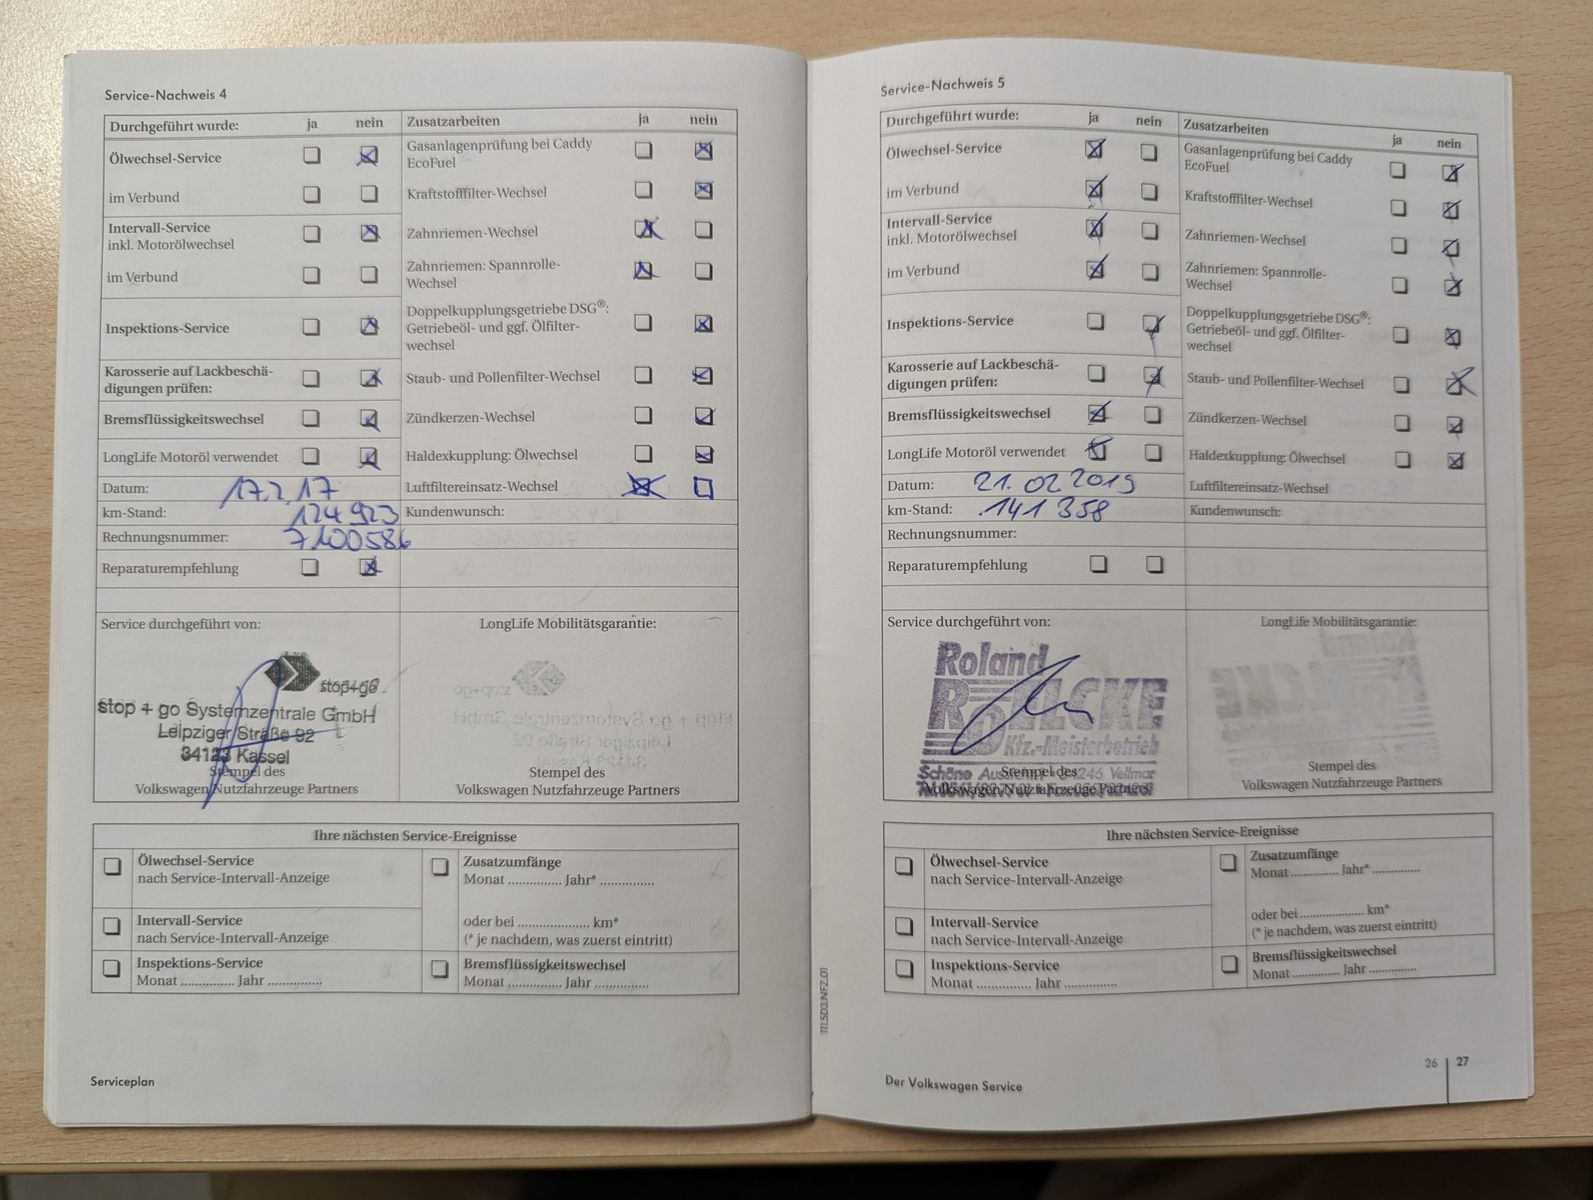 Service-Nachweis 4
Durchgeführt wurde: ja nein Zusatzarbeiten ja nein
Ölwechsel-Service
Gasanlagenprüfung bei Caddy
EcoFuel
im Verbund
Kraftstofffilter-Wechsel
Intervall-Service
inkl. Motorölwechsel
Zahnriemen-Wechsel
im Verbund
Zahnriemen: Spannrolle-
Wechsel
Inspektions-Service
Doppelkupplungsgetriebe DSG®:
Getriebeöl- und ggf. Ölfilter-
wechsel
Karosserie auf Lackbeschä-
digungen prüfen:
Staub- und Pollenfilter-Wechsel
Bremsflüssigkeitswechsel
Zündkerzen-Wechsel
LongLife Motoröl verwendet
Haldexkupplung: Ölwechsel
Datum: 17.2.17
Luftfiltereinsatz-Wechsel
km-Stand: 124 923
Kundenwunsch:
Rechnungsnummer: 7100586
Reparaturempfehlung
Service durchgeführt von:
LongLife Mobilitätsgarantie:
stop+go
stop + go Systemzentrale GmbH
Leipziger Straße 92
34123 Kassel
Stempel des
Volkswagen Nutzfahrzeuge Partners
Stempel des
Volkswagen Nutzfahrzeuge Partners
Ihre nächsten Service-Ereignisse
Ölwechsel-Service
nach Service-Intervall-Anzeige
Zusatzumfänge
Monat ............... Jahr* ...............
Intervall-Service
nach Service-Intervall-Anzeige
oder bei .................... km*
(* je nachdem, was zuerst eintritt)
Inspektions-Service
Monat ............... Jahr ...............
Bremsflüssigkeitswechsel
Monat ............... Jahr ...............
Serviceplan
Service-Nachweis 5
Durchgeführt wurde: ja nein Zusatzarbeiten ja nein
Ölwechsel-Service
Gasanlagenprüfung bei Caddy
EcoFuel
im Verbund
Kraftstofffilter-Wechsel
Intervall-Service
inkl. Motorölwechsel
Zahnriemen-Wechsel
im Verbund
Zahnriemen: Spannrolle-
Wechsel
Inspektions-Service
Doppelkupplungsgetriebe DSG®:
Getriebeöl- und ggf. Ölfilter-
wechsel
Karosserie auf Lackbeschä-
digungen prüfen:
Staub- und Pollenfilter-Wechsel
Bremsflüssigkeitswechsel
Zündkerzen-Wechsel
LongLife Motoröl verwendet
Haldexkupplung: Ölwechsel
Datum: 21.02.2019
Luftfiltereinsatz-Wechsel
km-Stand: 141 358
Kundenwunsch:
Rechnungsnummer:
Reparaturempfehlung
Service durchgeführt von:
LongLife Mobilitätsgarantie:
Roland
Kfz.-Meisterbetrieb
Schöne 34246 Vellmar
Stempel des
Volkswagen Nutzfahrzeuge Partners
Stempel des
Volkswagen Nutzfahrzeuge Partners
Ihre nächsten Service-Ereignisse
Ölwechsel-Service
nach Service-Intervall-Anzeige
Zusatzumfänge
Monat ............... Jahr* ...............
Intervall-Service
nach Service-Intervall-Anzeige
oder bei .................... km*
(* je nachdem, was zuerst eintritt)
Inspektions-Service
Monat ............... Jahr ...............
Bremsflüssigkeitswechsel
Monat ............... Jahr ...............
111.5D3.NFZ.01
Der Volkswagen Service
26 27